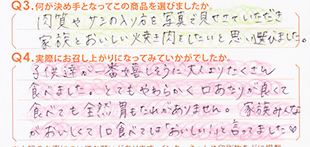 Q3.何が決め手となってこの商品を選びましたか。
肉質やサシの入り方を写真で見させていただき
家族とおいしい焼き肉をしたいと思い選びました。
Q4.実際にお召し上がりになってみていかがでしたか。
子供達が一番嬉しそうに大人よりたくさん
食べました。とてもやわらかく口あたりが良くて
食べても全然胃もたれがありません。家族みんな
がおいしくて1口食べては「おいしい」って言ってました